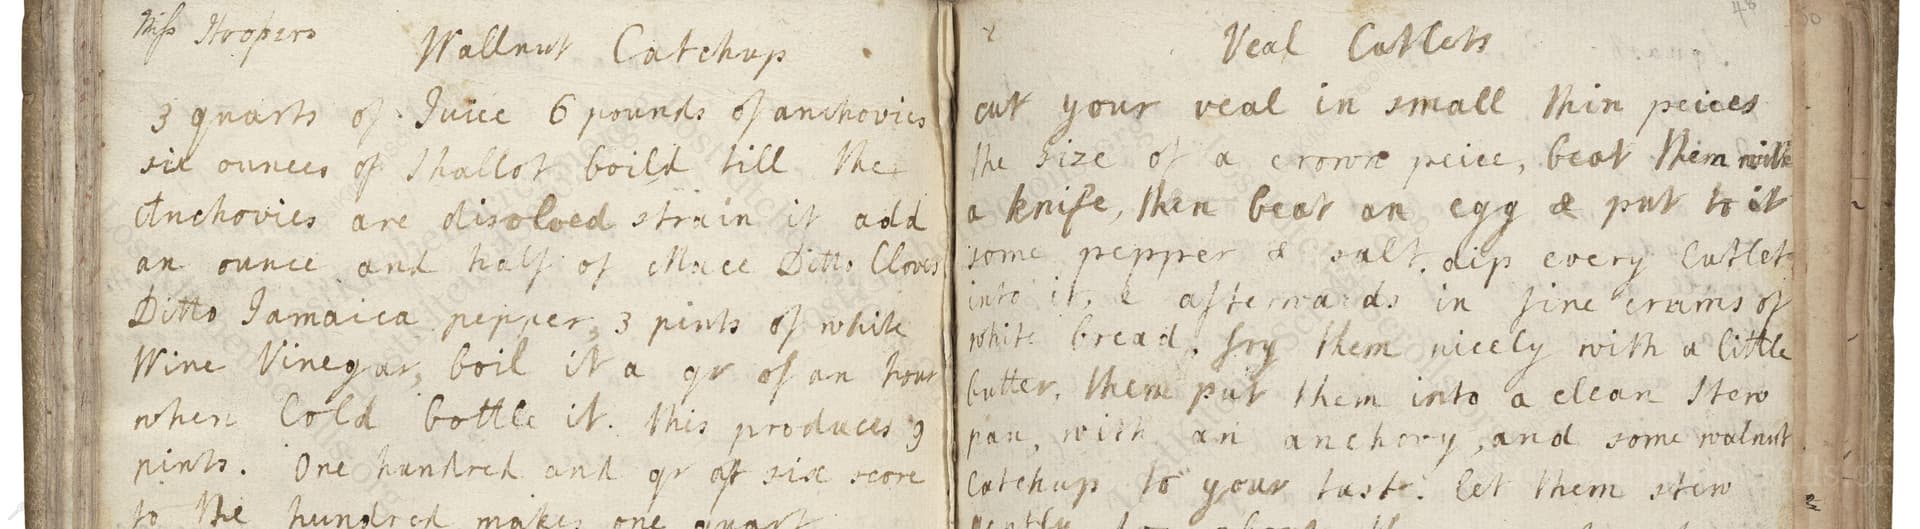 Miss Hoopers
Wallnut Catchup
3 quarts of Juice 6 pounds of anchovies
six ounces of Shallot boild till the
Anchovies are disolved strain it add
an ounce and half of Mace Ditto Cloves
Ditto Jamaica pepper, 3 pints of white
Wine Vinegar, boil it a qr of an hour
when Cold bottle it. this produces 9
pints. One hundred and qr at six score
to the hundred makes one quart
Veal Cutlets
cut your veal in small thin peices
the size of a crown peice, beat them with
a knife, then beat an egg & put to it
some pepper & salt. dip every Cutlet
into it, & afterwards in fine crams of
white bread. fry them nicely with a little
butter, them put them into a clean Stew
pan, with an anchovy, and some walnut
Catchup to your tast. let them stew
gently